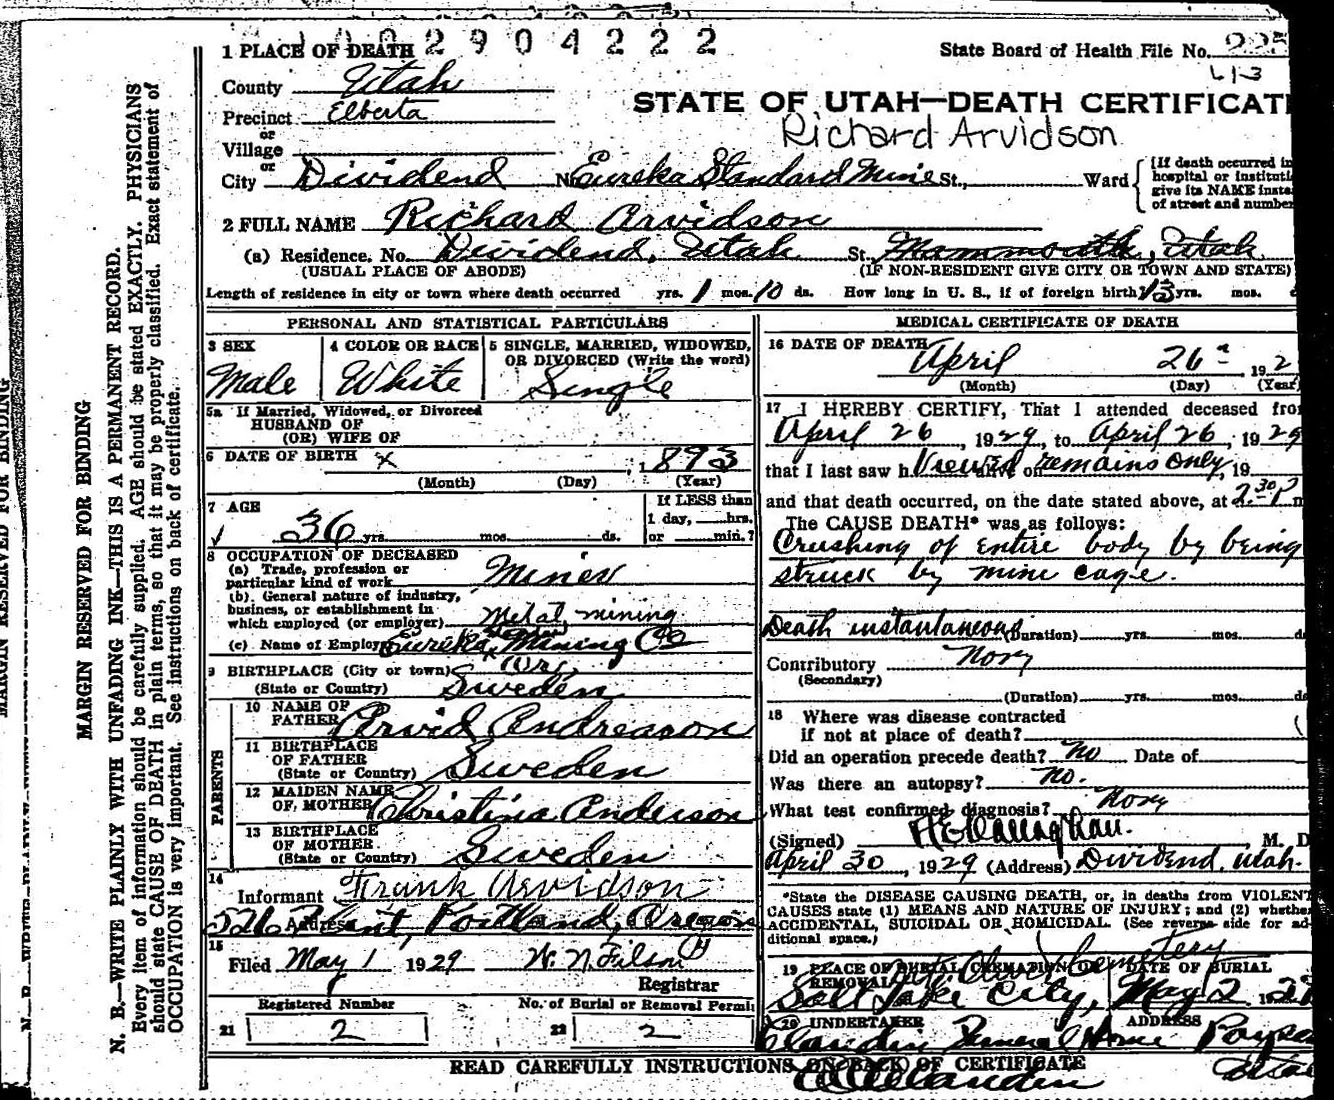 2904222
1 PLACE OF DEATH
State Board of Health File No.
County Utah
Precinct Elberta
or
Village
or
City Dividend No. Eureka Standard Mine St., Ward
STATE OF UTAH—DEATH CERTIFICATE
Richard Arvidson
[If death occurred in
hospital or instituti
give its NAME inste
of street and number
2 FULL NAME Richard Arvidson
(a) Residence. No. Dividend, Utah St. Mammouth, Utah
(USUAL PLACE OF ABODE) (IF NON-RESIDENT GIVE CITY OR TOWN AND STATE)
Length of residence in city or town where death occurred yrs. 1 mos. 10 ds. How long in U. S., if of foreign birth? 15 yrs. mos. d
PERSONAL AND STATISTICAL PARTICULARS
3 SEX
Male
4 COLOR OR RACE
White
5 SINGLE, MARRIED, WIDOWED,
OR DIVORCED (Write the word)
Single
5a If Married, Widowed, or Divorced
HUSBAND OF
(OR) WIFE OF
6 DATE OF BIRTH x , 1893
(Month) (Day) (Year)
7 AGE
36 yrs. mos. ds.
If LESS than
1 day, hrs.
or min.?
8 OCCUPATION OF DECEASED
(a) Trade, profession or
particular kind of work Miner
(b). General nature of industry,
business, or establishment in
which employed (or employer) Metal mining
(c) Name of Employer Eureka Mining Co
9 BIRTHPLACE (City or town)
(State or Country) Sweden
PARENTS
10 NAME OF
FATHER Arvid Andreason
11 BIRTHPLACE
OF FATHER
(State or Country) Sweden
12 MAIDEN NAME
OF MOTHER Christina Anderson
13 BIRTHPLACE
OF MOTHER
(State or Country) Sweden
14
Informant Frank Arvidson
Address Portland, Oregon
15
Filed May 1 1929 W. N. Filson
Registrar
Registered Number
21 2
No. of Burial or Removal Permit
22 2
MEDICAL CERTIFICATE OF DEATH
16 DATE OF DEATH
April 26 192
(Month) (Day) (Year
17 I HEREBY CERTIFY, That I attended deceased from
April 26, 1929, to April 26, 1929
that I last saw h Viewed alive on remains only, 19
and that death occurred, on the date stated above, at 2:30 P m
The CAUSE DEATH* was as follows:
Crushing of entire body by being
struck by mine cage.
Death instantaneous (Duration) yrs. mos. d
Contributory None
(Secondary)
(Duration) yrs. mos. d
18 Where was disease contracted
if not at place of death?
Did an operation precede death? No Date of
Was there an autopsy? No.
What test confirmed diagnosis? None
(Signed) M. D
April 30, 1929 (Address) Dividend, Utah.
*State the DISEASE CAUSING DEATH, or, in deaths from VIOLENT
CAUSES state (1) MEANS AND NATURE OF INJURY; and (2) whether
ACCIDENTAL, SUICIDAL OR HOMICIDAL. (See reverse side for ad-
ditional space.)
19 PLACE OF BURIAL, CREMATION OR
REMOVAL Mt. Olivet Cemetery
Salt Lake City,
DATE OF BURIAL
May 2 1929
20 UNDERTAKER ADDRESS
Funeral Home Payson
Utah
READ CAREFULLY INSTRUCTIONS ON BACK OF CERTIFICATE
MARGIN RESERVED FOR BINDING
MARGIN RESERVED FOR BINDING
N. B.—WRITE PLAINLY WITH UNFADING INK—THIS IS A PERMANENT RECORD.
Every item of information should be carefully supplied. AGE should be stated EXACTLY. PHYSICIANS
should state CAUSE OF DEATH in plain terms, so that it may be properly classified. Exact statement of
OCCUPATION is very important. See instructions on back of certificate.